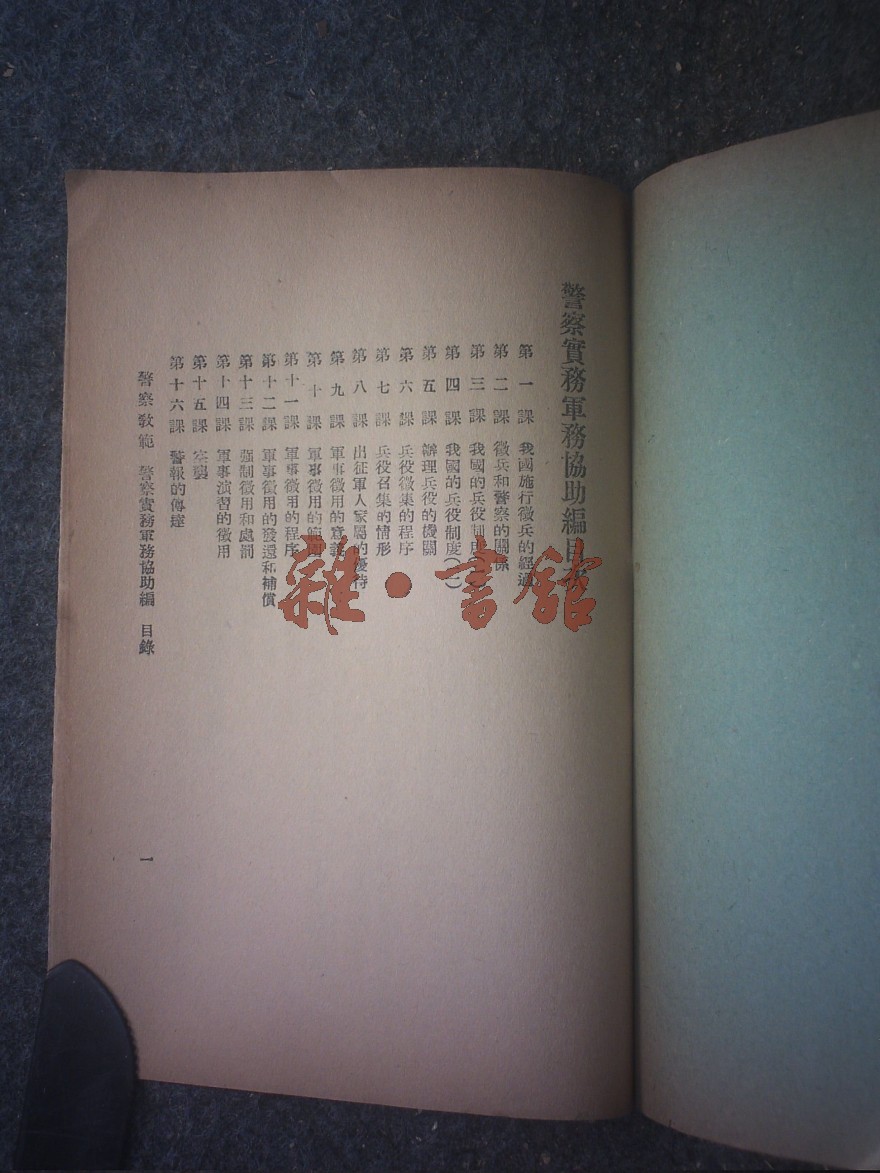 警察實務軍務協助編目
第一課 我國施行徵兵的經過
第二課 徵兵和警察的關係
第三課 我國的兵役制度
第四課 我國的兵役制度(二)
第五課 辦理兵役的機關
第六課 兵役徵集的程序
第七課 兵役召集的情形
第八課 出征軍人家屬的優待
第九課 軍事徵用的意義
第十課 軍事徵用的範圍
第十一課 軍事徵用的程序
第十二課 軍事徵用的發還和補償
第十三課 強制徵用和處罰
第十四課 軍事演習的徵用
第十五課 空襲
第十六課 警報的傳達
警察教範 警察實務軍務協助編 目錄
一
雜·書館